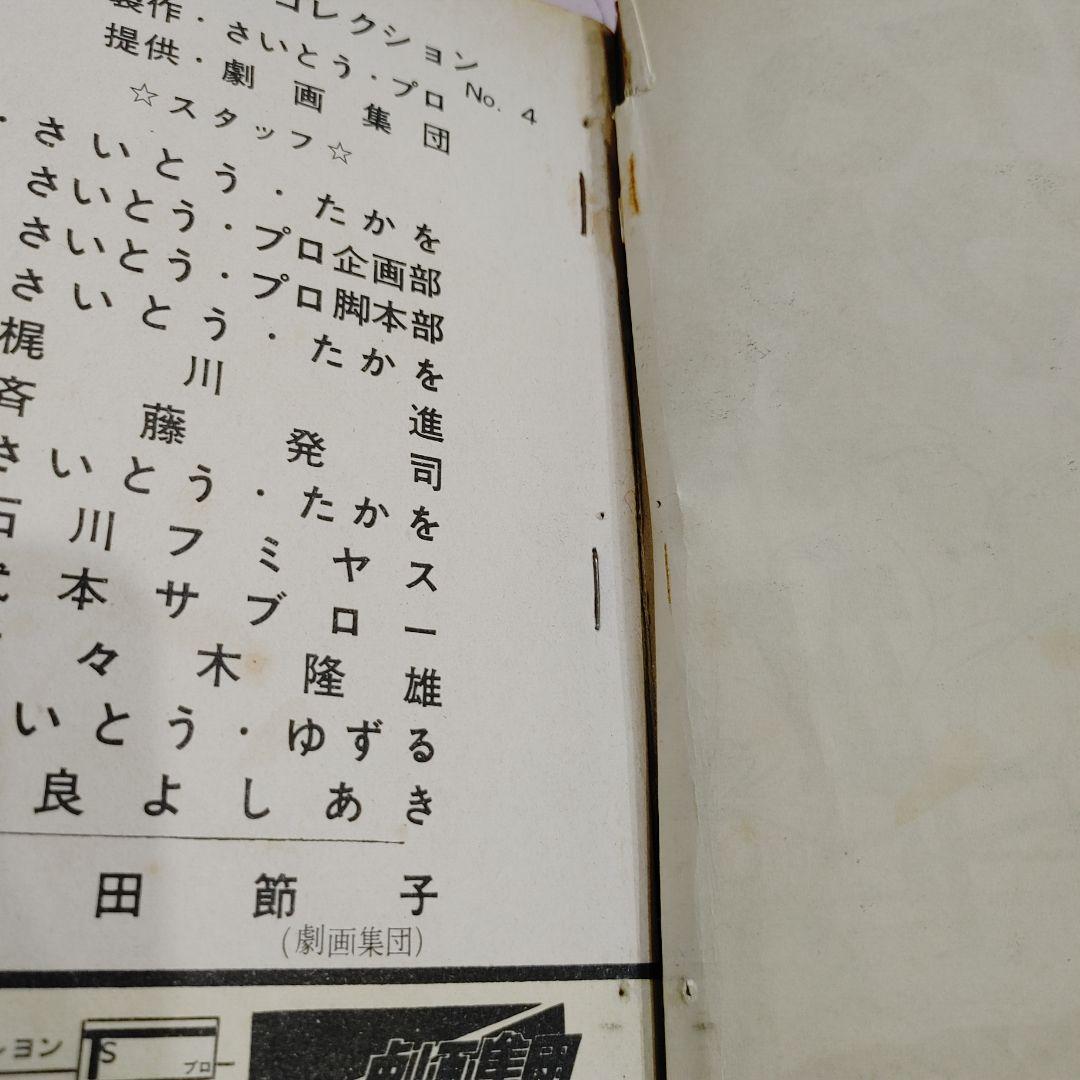 コレクション No. 4
製作・さいとう・プロ
提供・劇画集団
☆スタッフ☆
・さいとう・たかを
さいとう・プロ企画部
さいとう・プロ脚本部
さいとう・たかを
梶川 進
斉藤発司
さいとう・たかを
石川フミヤス
武本サブロー
々木隆雄
いとう・ゆずる
良よしあき
田節子
(劇画集団)
ション
S
プロ
劇画集団